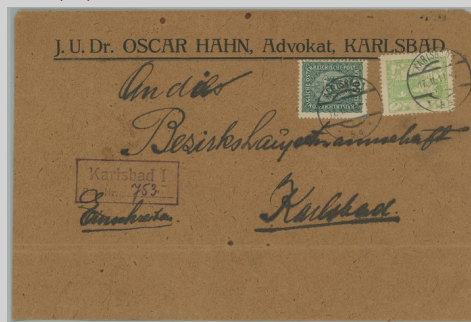 J. U. Dr. OSCAR HAHN, Advokat, KARLSBAD
An die
Bezirkshauptmannschaft
Karlsbad I
753
Einschreiben
Karlsbad.